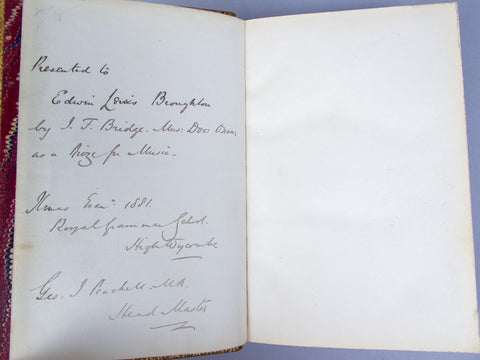 Presented to
Edwin Lewis Broughton
by J. F. Bridge. Mus: Doc: Oxon:
as a Prize for Music.
Xmas Exn. 1881.
Royal Grammar Schl.
High Wycombe
Geo. J. M.A.
Head Master